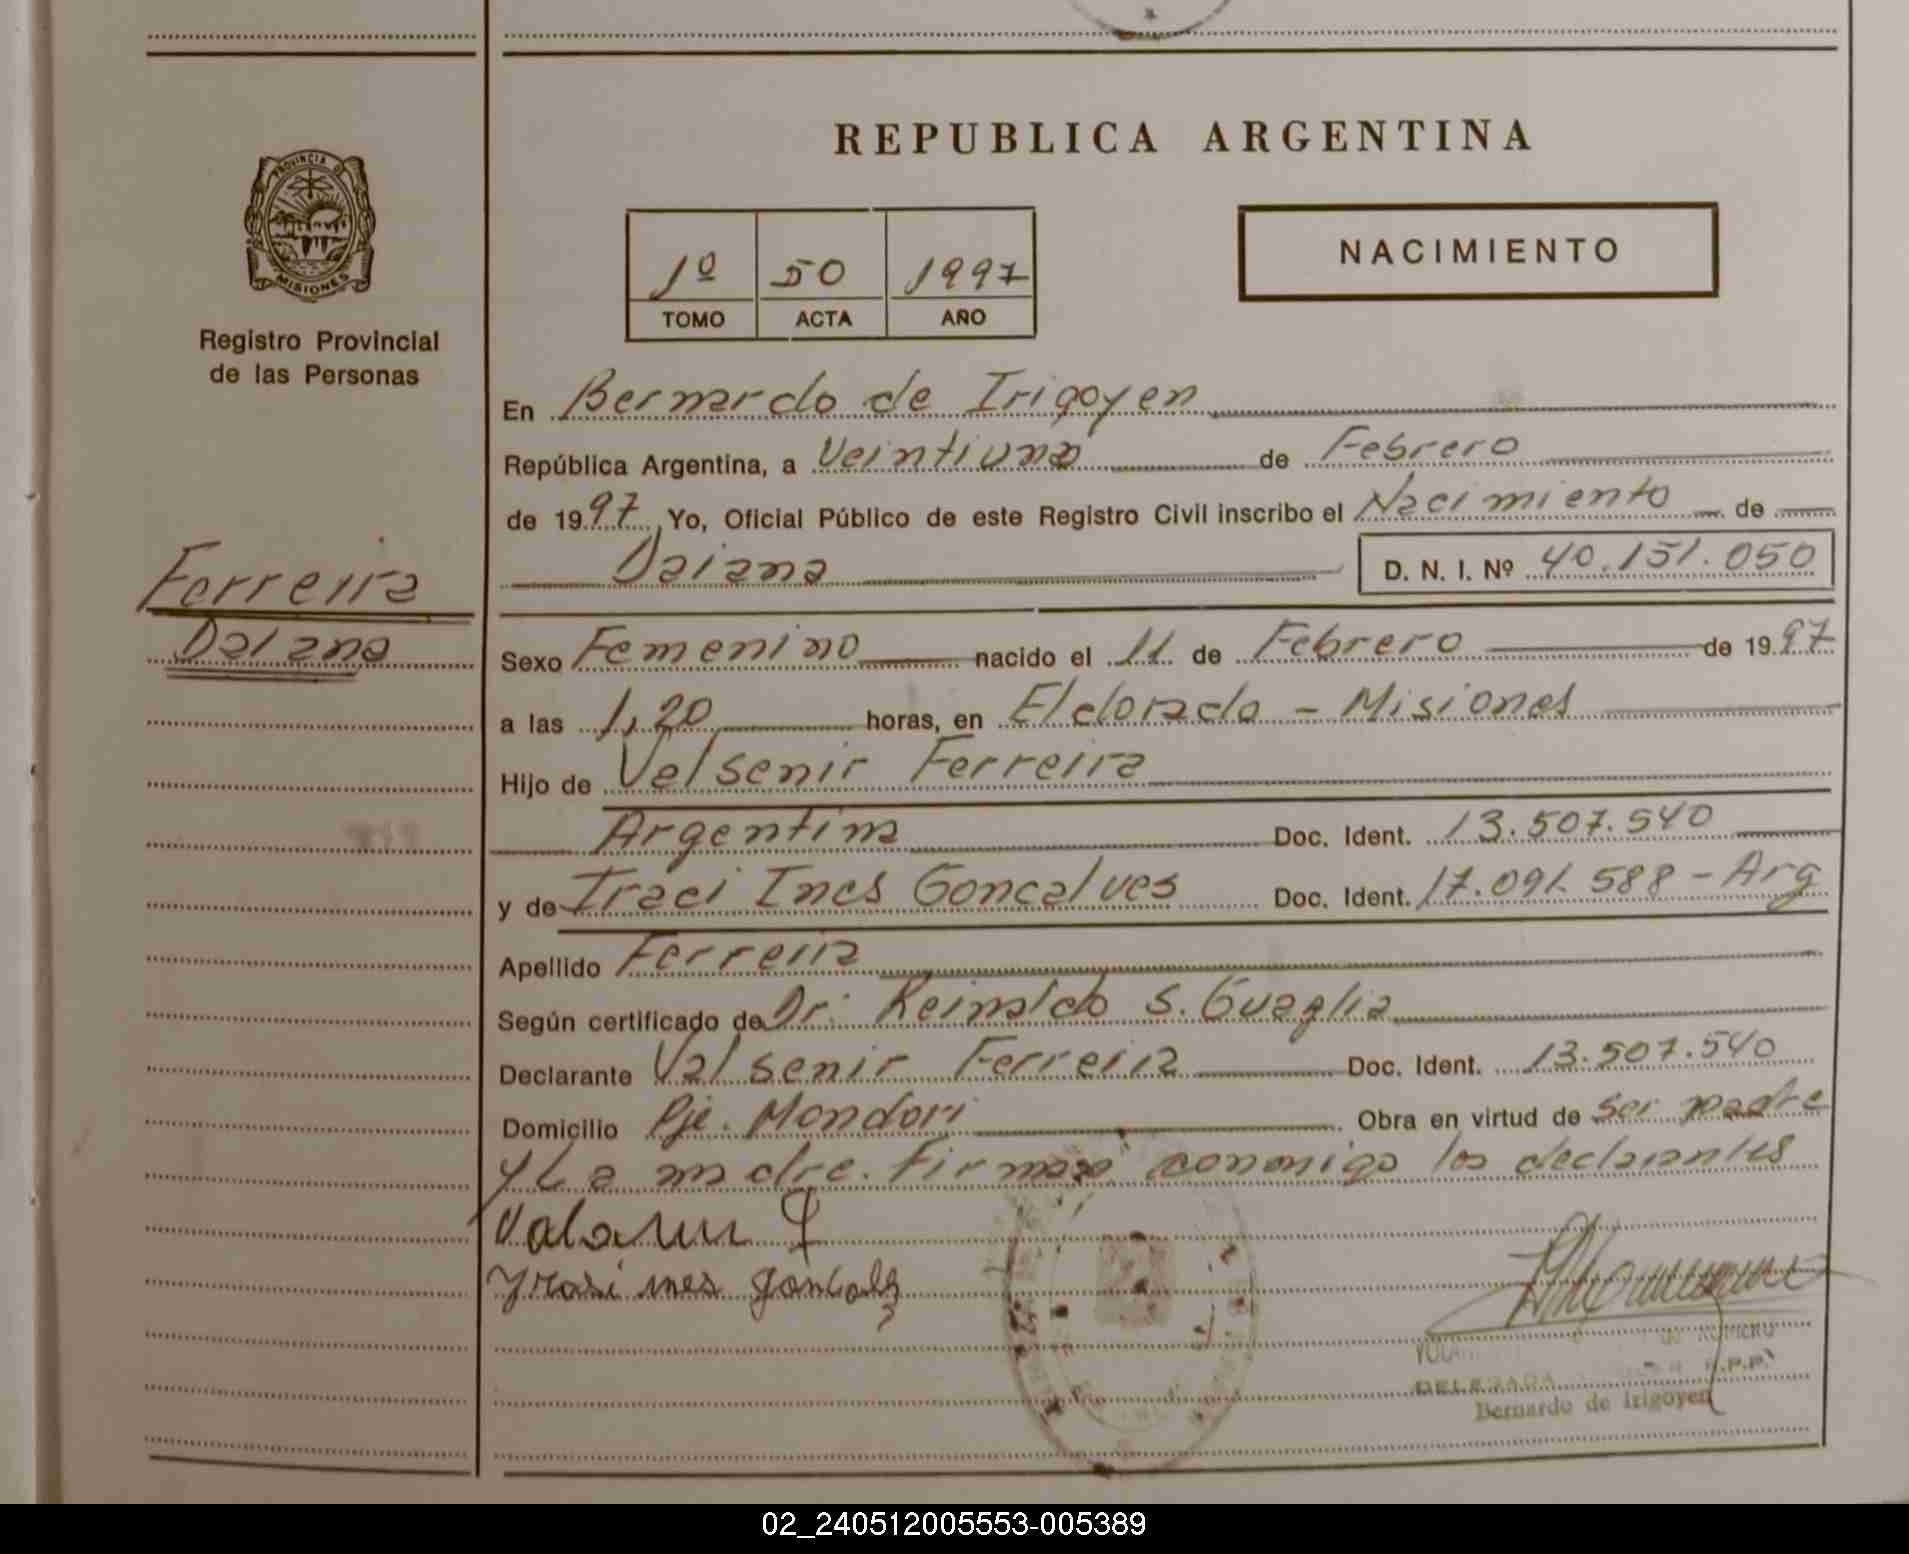 REPUBLICA ARGENTINA
PROVINCIA DE
MISIONES
Registro Provincial
de las Personas
1º 50 1997
TOMO ACTA AÑO
NACIMIENTO
En Bernardo de Irigoyen
República Argentina, a Veintiuno de Febrero
de 1997 Yo, Oficial Público de este Registro Civil inscribo el Nacimiento de
Daiana D. N. I. Nº 40.151.050
Ferreira
Daiana
Sexo Femenino nacido el 11 de Febrero de 1997
a las 1,20 horas, en Eldorado - Misiones
Hijo de Valsenir Ferreira
Argentina Doc. Ident. 13.507.540
y de Iraci Ines Goncalves Doc. Ident. 17.091.588 - Arg
Apellido Ferreira
Según certificado de Dr. Reinaldo S. Guaglia
Declarante Valsenir Ferreira Doc. Ident. 13.507.540
Domicilio Pje. Mondori Obra en virtud de ser padre
y La madre. Firman conmigo los declarantes
DELEGADA R.P.P.
Bernardo de Irigoyen
02_240512005553-005389